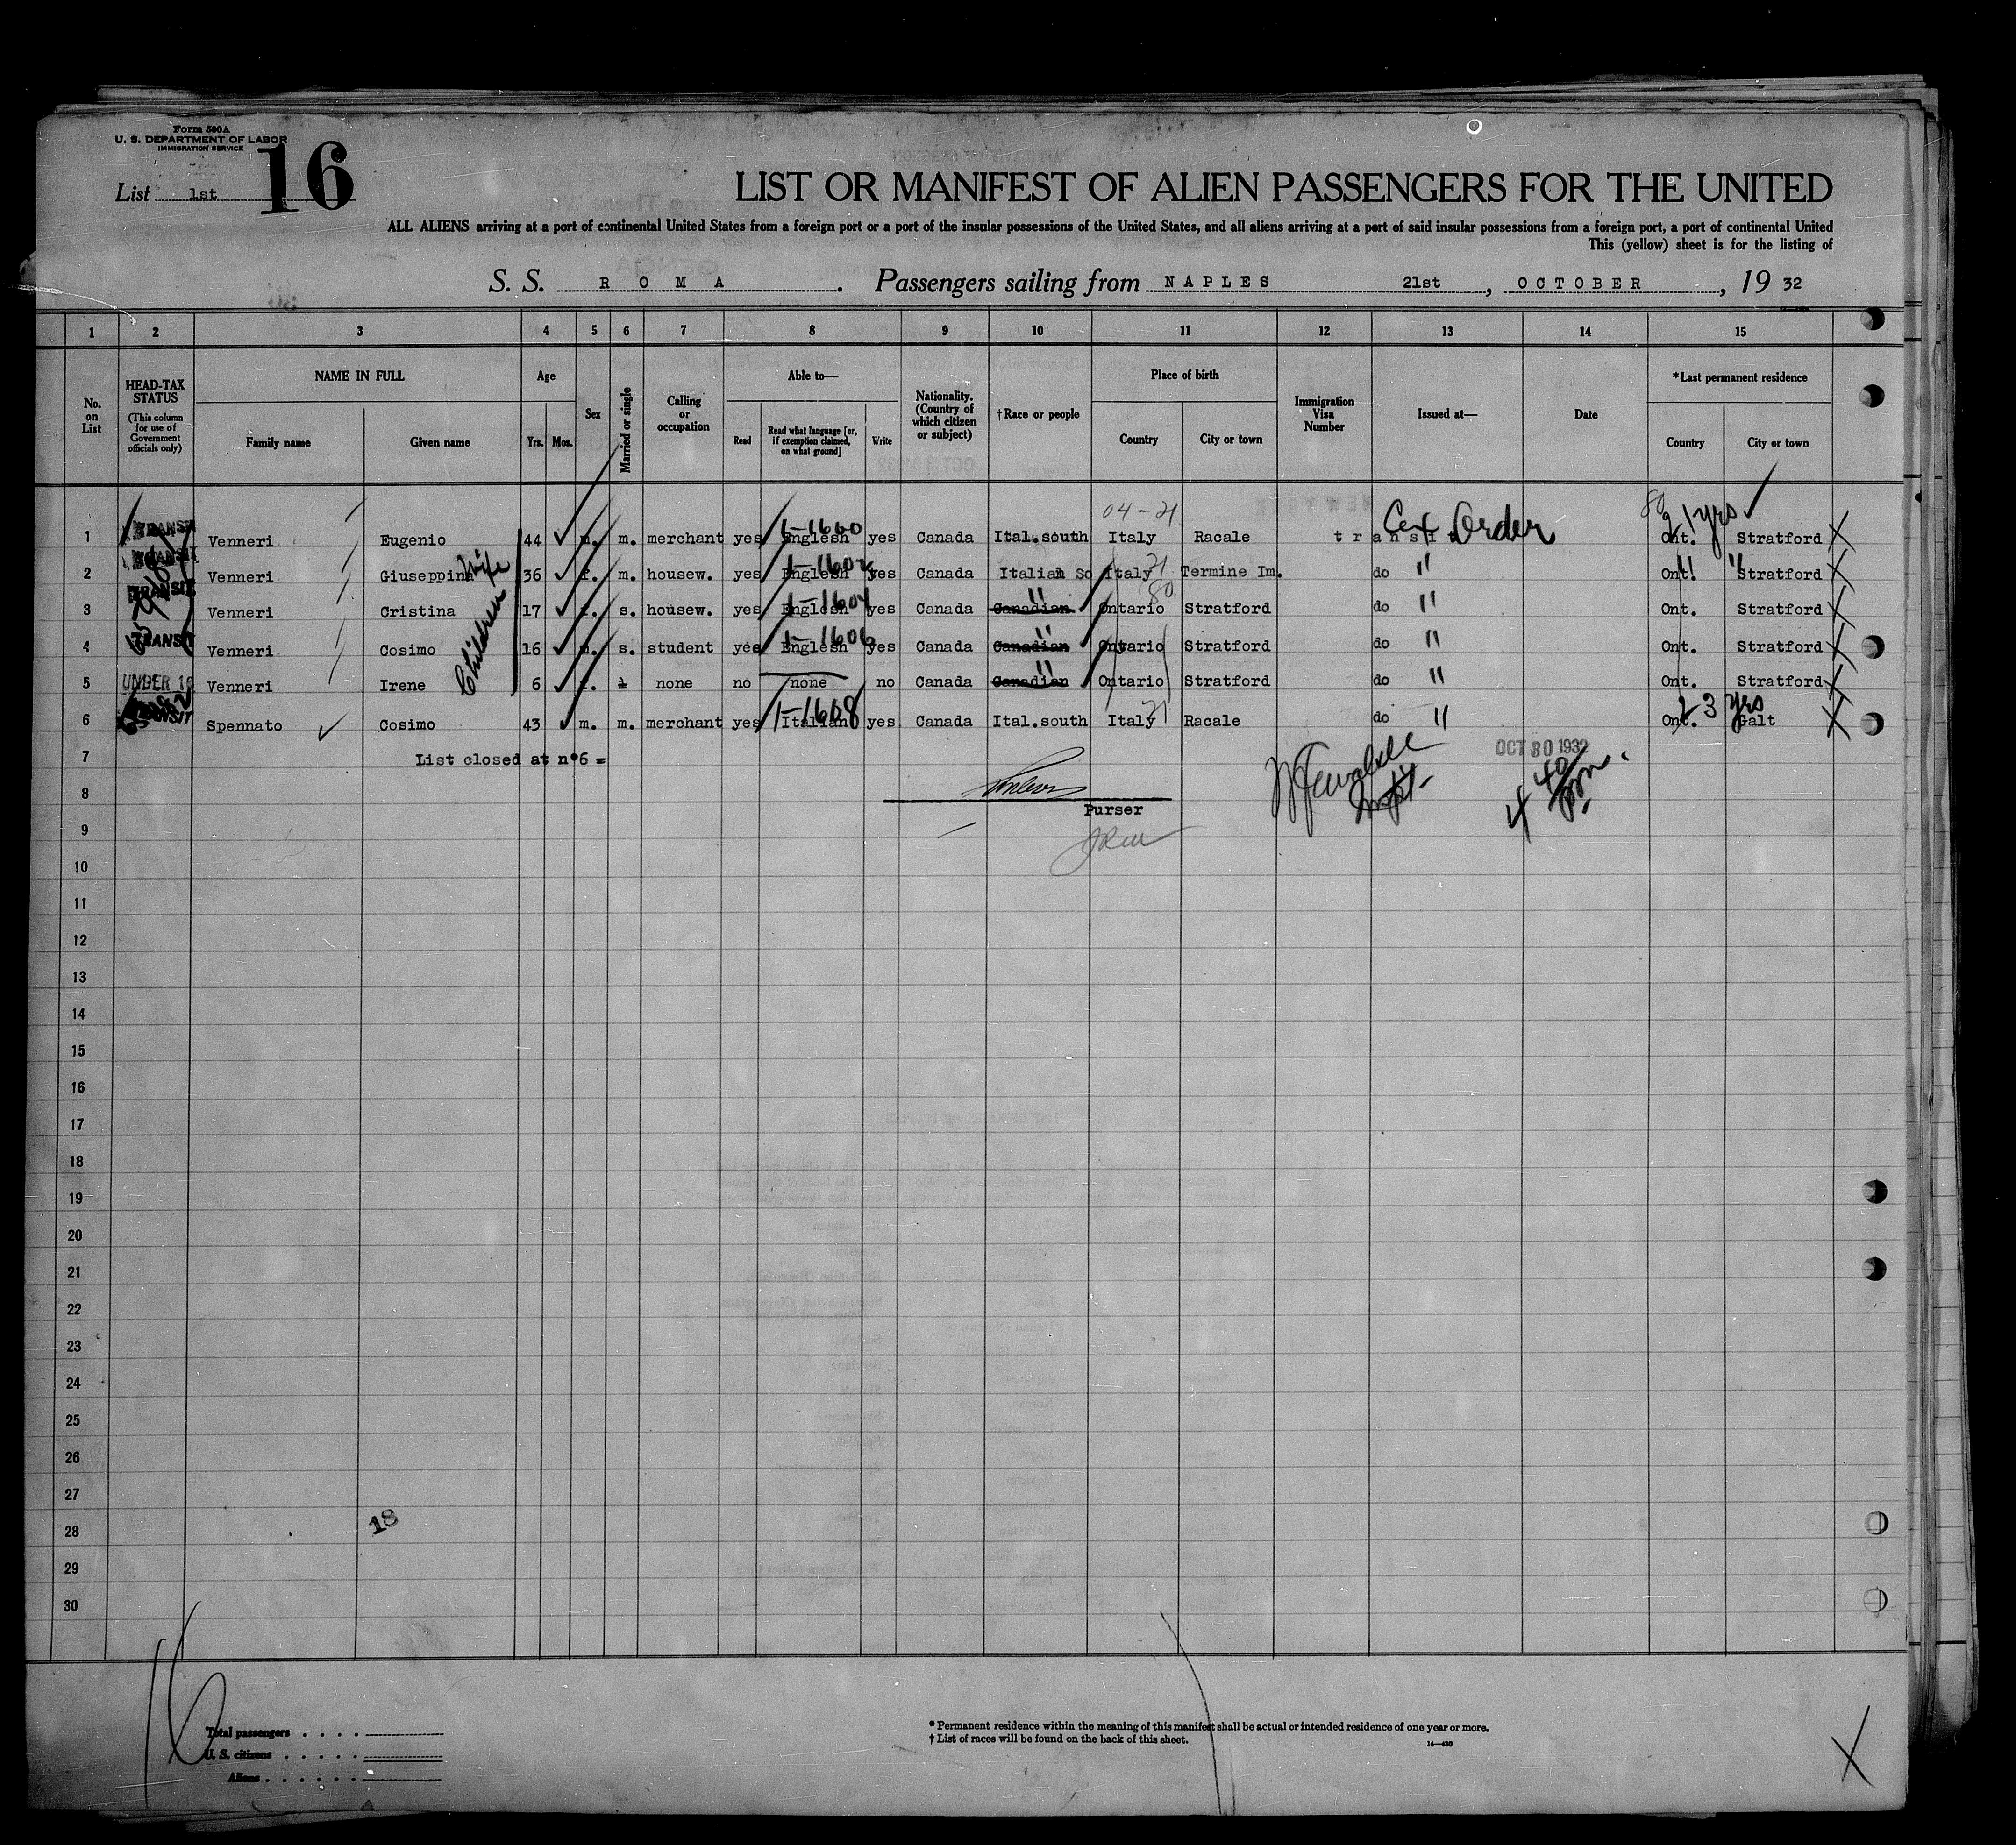 Form 500A
U. S. DEPARTMENT OF LABOR
IMMIGRATION SERVICE
List 1st 16
LIST OR MANIFEST OF ALIEN PASSENGERS FOR THE UNITED
ALL ALIENS arriving at a port of continental United States from a foreign port or a port of the insular possessions of the United States, and all aliens arriving at a port of said insular possessions from a foreign port, a port of continental United
This (yellow) sheet is for the listing of
S. S. ROMA. Passengers sailing from NAPLES 21st, OCTOBER, 19 32
1 2 3 4 5 6 7 8 9 10 11 12 13 14 15
No. on List
HEAD-TAX STATUS (This column for use of Government officials only)
NAME IN FULL
Family name Given name
Age
Yrs. Mos.
Sex
Married or single
Calling or occupation
Able to—
Read Read what language [or, if exemption claimed, on what ground] Write
Nationality. (Country of which citizen or subject)
†Race or people
Place of birth
Country City or town
Immigration Visa Number
Issued at—
Date
*Last permanent residence
Country City or town
04-21 80
1 TRANSIT Venneri Eugenio 44 m. m. merchant yes Englesh 1-1600 yes Canada Ital.south Italy Racale transit Order Ont. 21 yrs Stratford X
2 TRANSIT Venneri Giuseppina Wife 36 f. m. housew. yes Englesh 1-1602 yes Canada Italian So Italy 21 Termine Im. do " Ont. " " Stratford X
3 TRANSIT Venneri Cristina Children 17 f. s. housew. yes Englesh 1-1604 yes Canada Canadian " Ontario 80 Stratford do " Ont. Stratford X
4 TRANSIT Venneri Cosimo 16 m. s. student yes Englesh 1-1606 yes Canada Canadian " Ontario Stratford do " Ont. Stratford X
5 UNDER 16 Venneri Irene 6 f. none no none no Canada Canadian " Ontario Stratford do " Ont. Stratford X
6 TRANSIT Spennato Cosimo 43 m. m. merchant yes Italian 1-1608 yes Canada Ital.south Italy 21 Racale do " Ont. 23 yrs Galt X
7 List closed at n°6 =
OCT 30 1932
4 40 pm.
8
Purser
9
10
11
12
13
14
15
16
17
18
19
20
21
22
23
24
25
26
27
28 18
29
30
16
Total passengers . . . .
U. S. citizens . . . . .
Aliens . . . . . .
* Permanent residence within the meaning of this manifest shall be actual or intended residence of one year or more.
† List of races will be found on the back of this sheet.
14—430
X